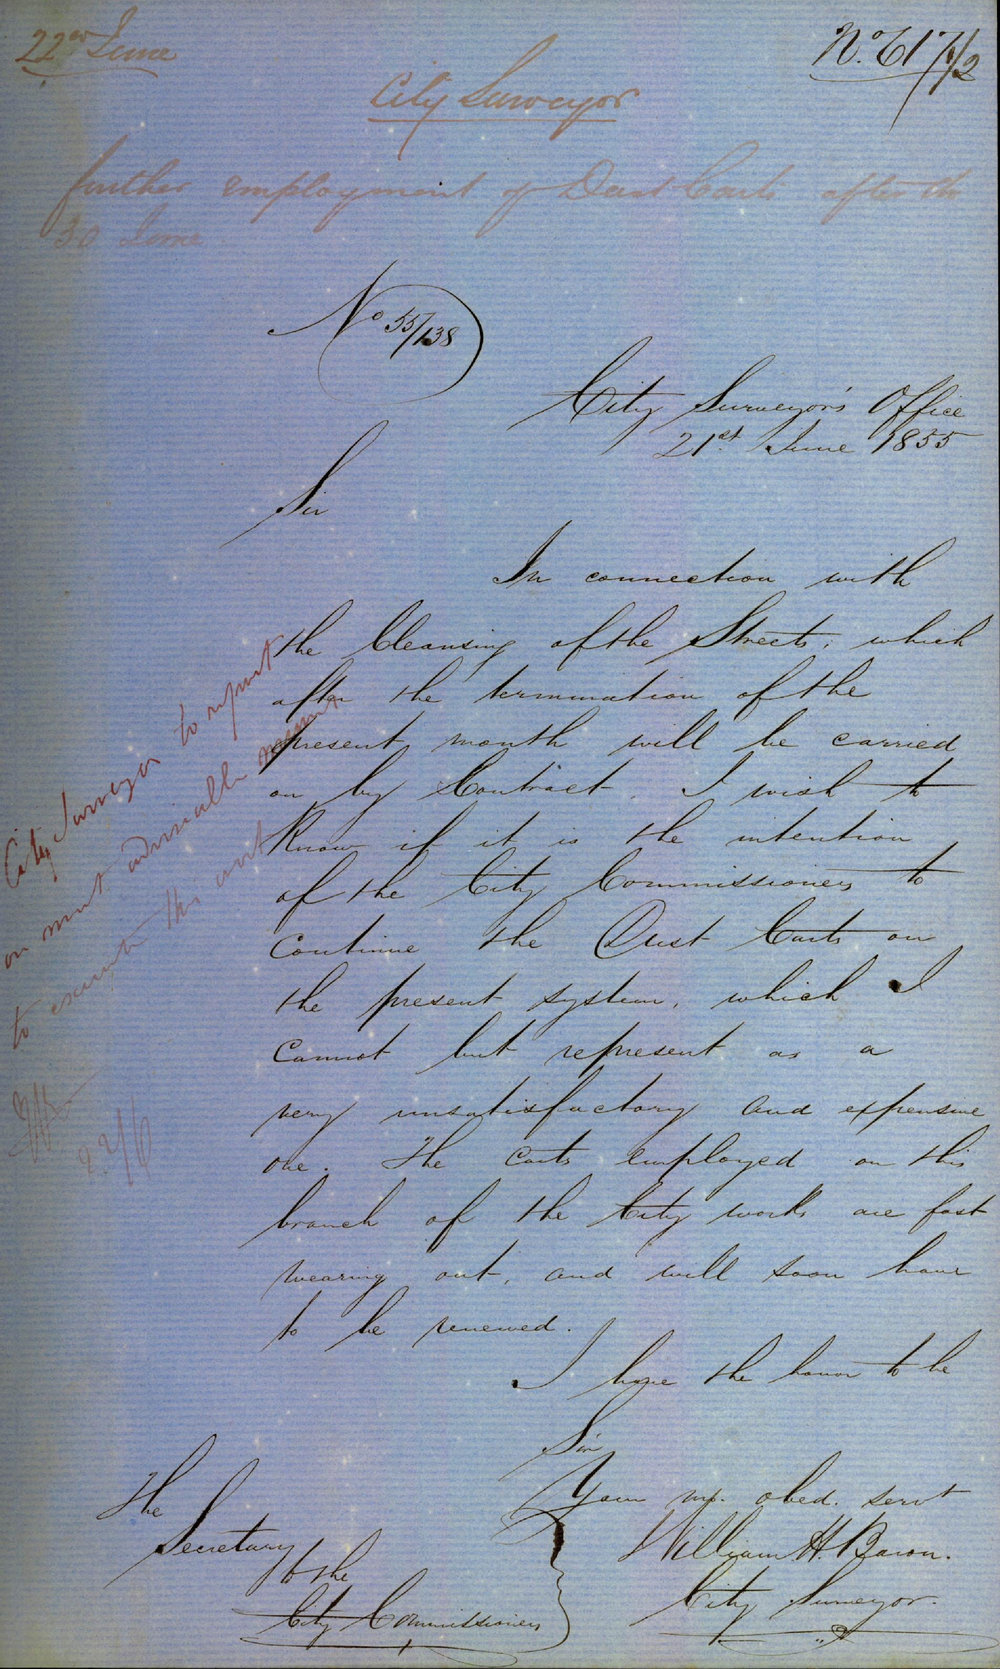 22nd June
No. 617 1/2
City Surveyor
further employment of Dust Carts after the
30 June
No 55/138
City Surveyor's Office
21st. June 1855
Sir
In connection with
the Cleansing of the Streets, which
after the termination of the
present month will be carried
on by Contract. I wish to
Know if it is the intention
of the City Commissioners to
Continue the Dust Carts on
the present system, which I
Cannot but represent as a
very unsatisfactory and expensive
one. The Carts employed on this
branch of the City works are fast
wearing out, and will soon have
to be renewed.
I have the honor to be
Sir
Your mo. obed. servt
William H. Baron.
City Surveyor.
The
Secretary
to the
City Commissioners
City Surveyor to report
on most advisable means
to execute this work
22/6